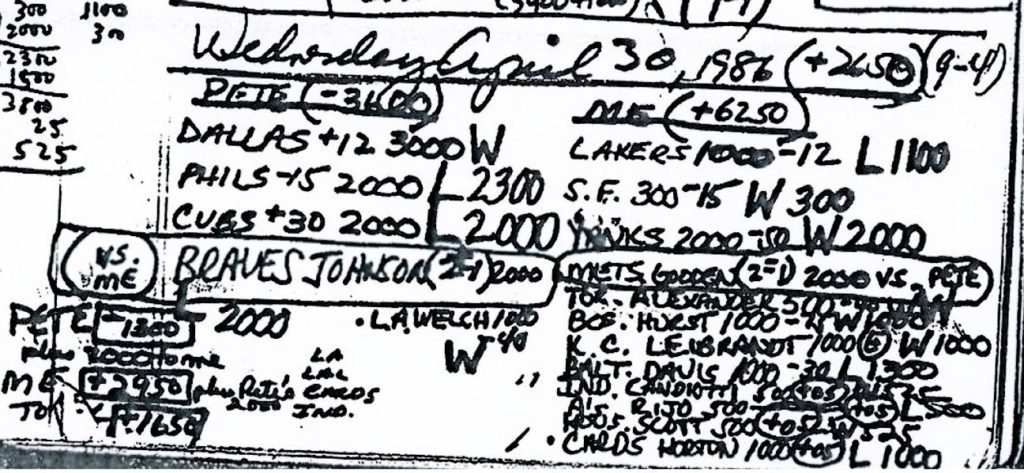 300 1100
2000 30
2300
1500
3800
25
525
Wednesday April 30, 1986 (+2650) (9-4)
PETE (-3600)
DALLAS +12 3000 W
PHILS -15 2000 L 2300
CUBS +30 2000 L 2000
VS. ME BRAVES JOHNSON (2-1) 2000
L 2000
PETE -1300
plus 2000 to me
ME +2950 plus Pete's 2000
+1650
L.A. WELCH 1000 -40
W
LA
LAL
CARDS
IND.
ME (+6250)
LAKERS 1000 -12 L 1100
S.F. 300 -15 W 300
YANKS 2000 -50 W 2000
METS GOODEN (2-1) 2000 VS. PETE
W
TOR. ALEXANDER 500
BOS. HURST 1000 W 1000
K.C. LEIBRANDT 1000 W 1000
BALT. DAVIS 1000 -30 L 1300
IND. CANDIOTTI 500 (+05)
A'S RIJO 500 (+05) L 500
HOUS. SCOTT 500 (+05) W 525
CARDS HORTON 1000 (+05) L 1000